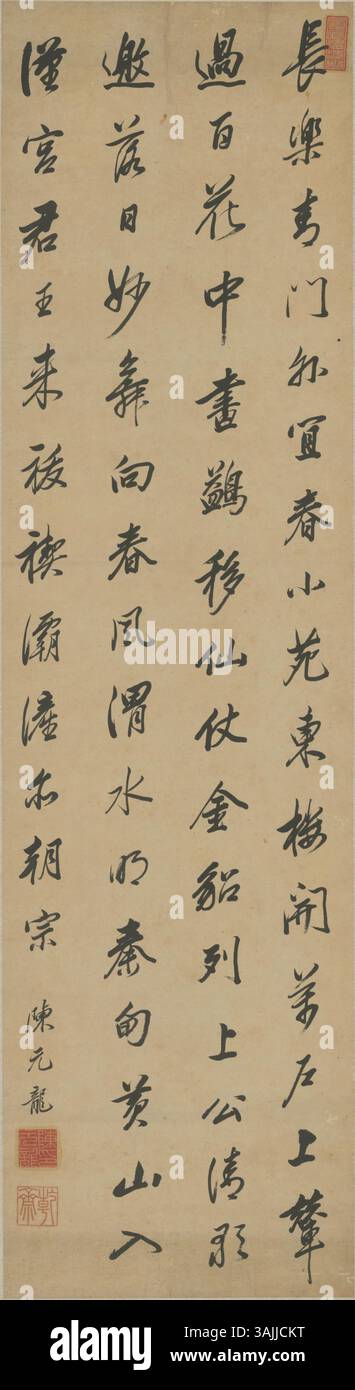 長樂青門外宜春小苑東樓開萬戶上輦
過百花中畫鷁移仙仗金貂列上公清歌
邀落日妙舞向春風渭水明秦甸黃山入
漢宮君王来祓禊灞滻亦朝宗
陳元龍
alamy
Image ID: 3AJJCKT
www.alamy.com